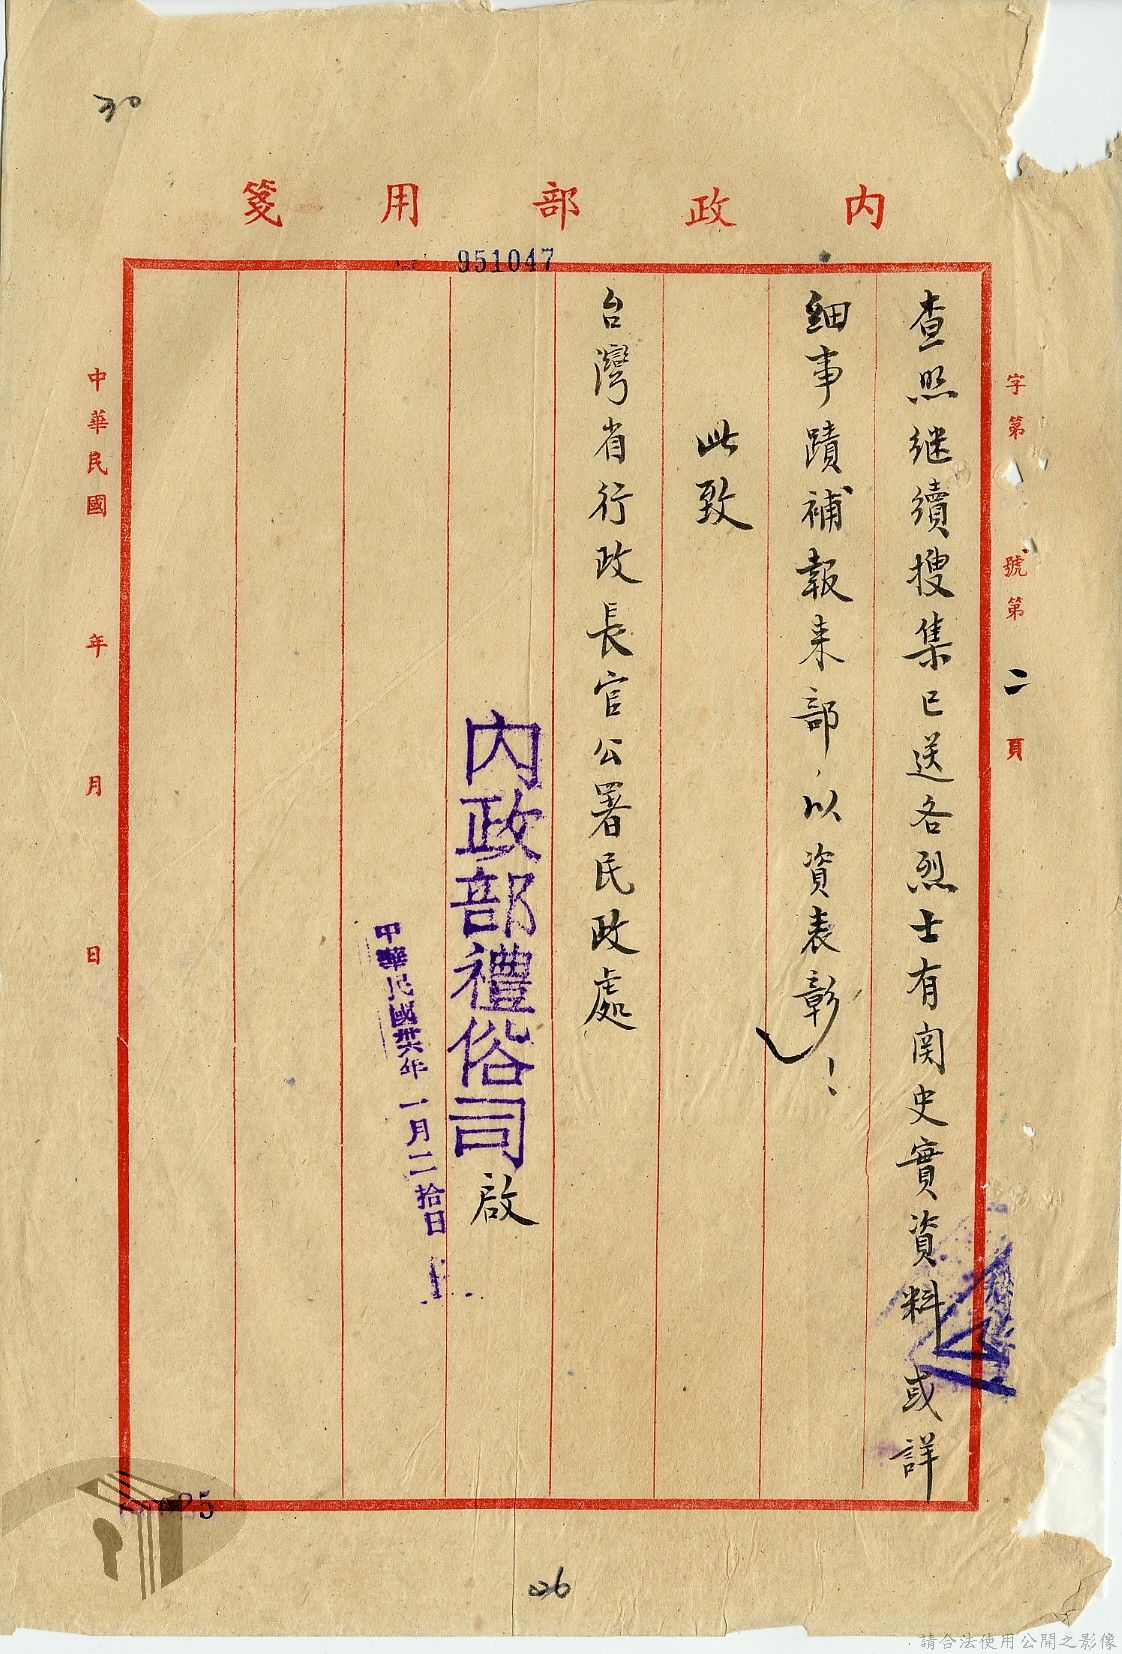 30
內政部用箋
951047
字第 號第二頁
查照继續搜集已送各烈士有関史實資料或詳
細事蹟補報来部，以資表彰！
此致
台灣省行政長官公署民政處
內政部禮俗司啟
中華民國卅六年一月二拾日
中華民國 年 月 日
25
26
請合法使用公開之影像